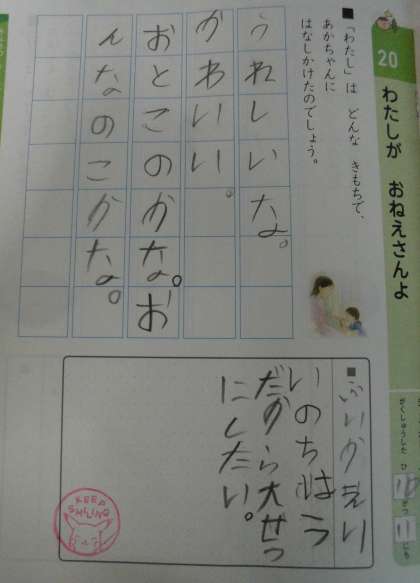 20 わたしが おねえさんよ
がくしゅうした ひ
11
■「わたし」は どんな きもちで、
あかちゃんに
はなしかけたのでしょう。
うれしいな。
かわいい。
おとこのかな。お
んなのこかな。
■ふりかえり
いのちはう
だから大せつ
にしたい。
KEEP
SMILING